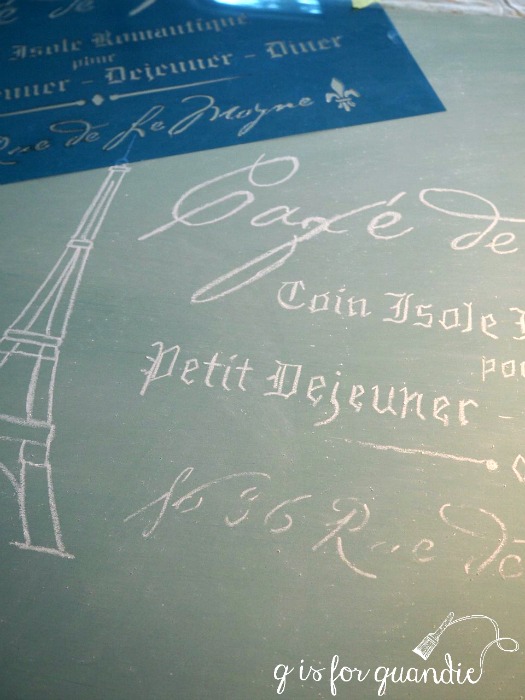 Isole Romantique
pour
Dejeuner - Diner
Rue de Le Moyne
Café de
Coin Isole
Petit Dejeuner -
1636 Rue de
g is for quandie